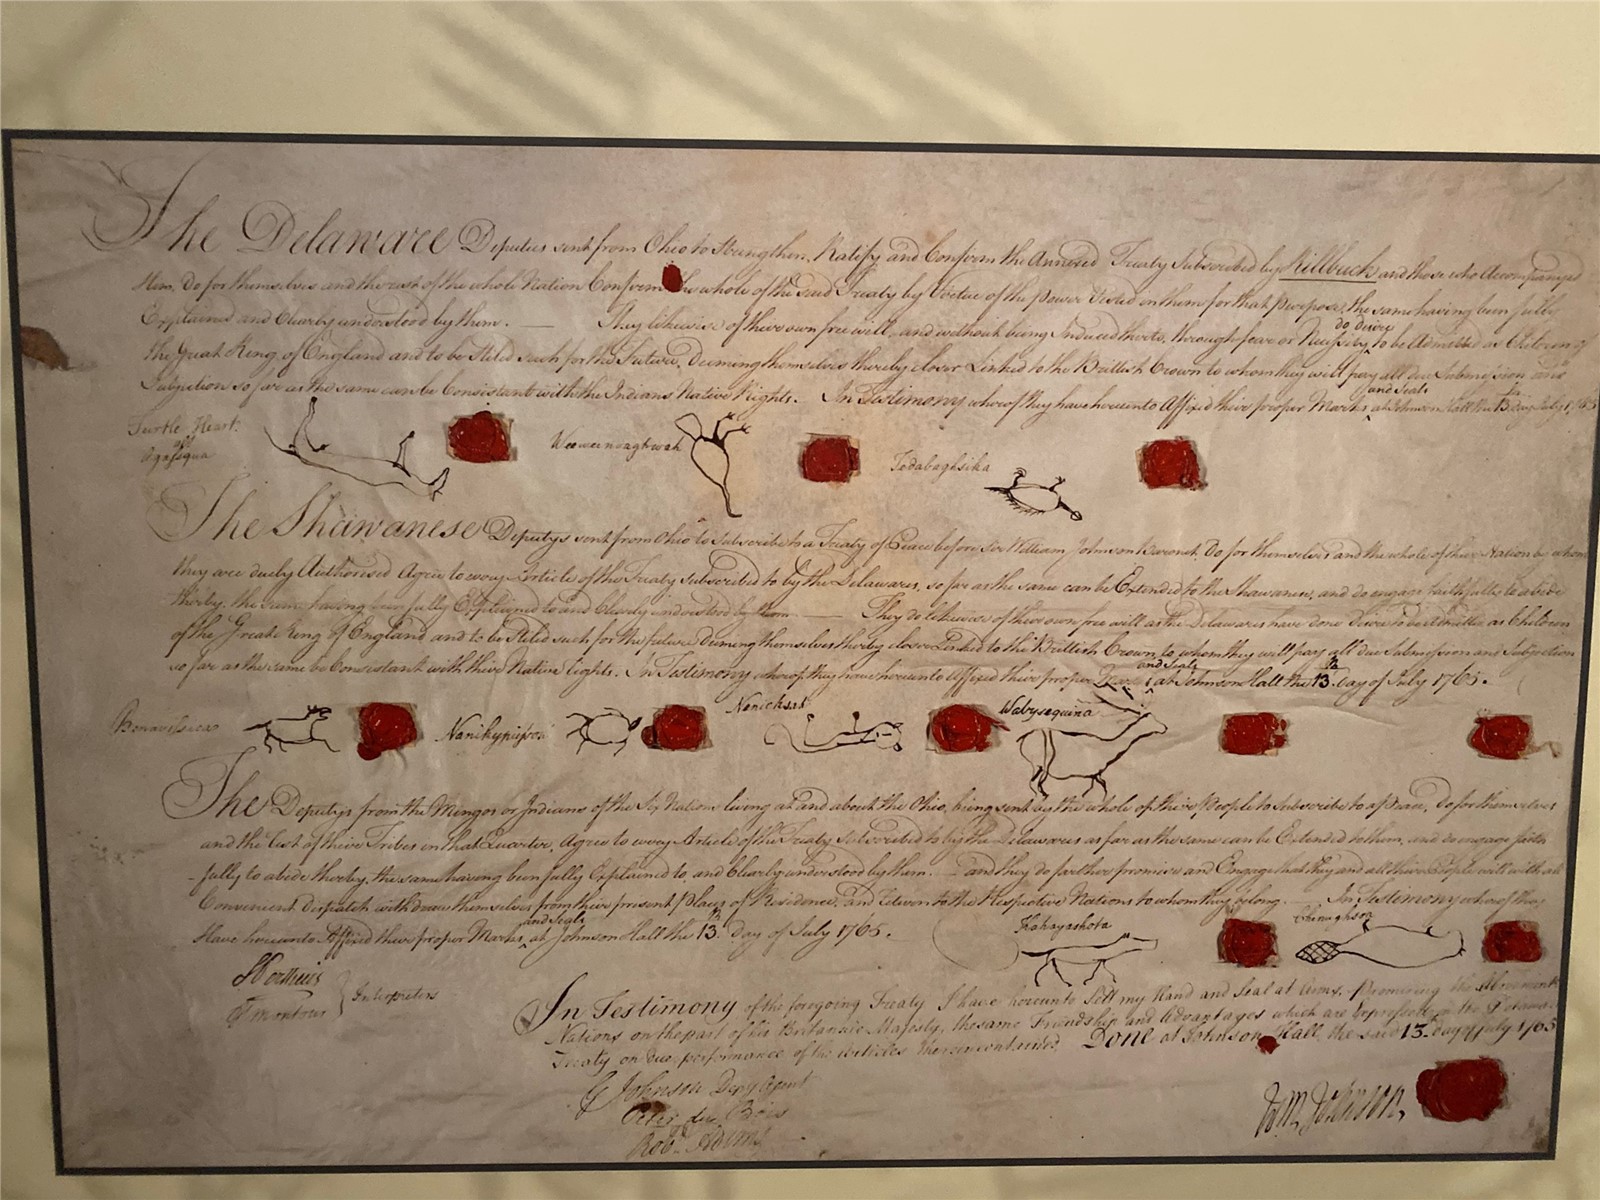 The Delaware Deputies sent from Ohio to Strengthen, Ratify and Confirm the Annexed Treaty Subscribed by Killbuck and those who Accompanyed
Him, do for themselves and the rest of the whole Nation Confirm the whole of the said Treaty by Virtue of the power Vested in them for that purpose, the same having been fully
Explained and Clearly understood by them. — They likewise of their own free will, and without being Induced thereto, through fear or Necessity do desire to be Admitted as Children of
the Great King of England and to be Stiled such for the Future, Deeming themselves thereby closer Linked to the Brittish Crown to whom they will pay all due Submission and
Subjection so far as the same can be Consistant with the Indians Native Rights. In Testimony whereof they have hereunto Affixed their proper Marks and Seals at Johnson Hall the 13th day July 1765
Turtle Heart:
or
Weeweenoaghwah
Tedabaghsika
The Shawanese Deputys sent from Ohio to Subscribe to a Treaty of Peace before Sir William Johnson Baronet, Do for themselves and the whole of their Nation by whom
they are duely Authorised Agree to every Article of the Treaty subscribed to by the Delawares, so far as the same can be Extended to the Shawanese, and do engage faithfully to abide
thereby, the same having been fully Explained to and Clearly understood by them — They do likewise of their own free will as the Delawares have done Desire to be Admitted as Children
of the Great King of England and to be Stiled such for the future Deeming themselves thereby closer Linked to the Brittish Crown, to whom they will pay all due Submission and Subjection
so far as the same be Consistant with their Native Rights. In Testimony whereof they have hereunto Affixed their proper and Seals at Johnson Hall the 13th day of July 1765.
Benavissica
Nanikypusson
Nenicksah
Wabysequina
The Deputys from the Mingos or Indians of the Six Nations living at and about the Ohio, being sent by the whole of their People to Subscribe to a Peace, Do for themselves
and the rest of their Tribes in that Quarter, Agree to every Article of the Treaty Subscribed to by the Delawares as far as the same can be Extended to them, and do engage faith
-fully to abide thereby, the same having been fully Explained to, and Clearly understood by them. — and they do further promise and Engage that they and all their People will with all
Convenient dispatch withdraw themselves from their present Places of Residence, and Return to the Respective Nations to whom they belong. — In Testimony whereof they
Have hereunto Affixed their proper Marks and Seals at Johnson Hall the 13th day of July 1765.
Kahayashota
Choughson
Interpreters
In Testimony of the foregoing Treaty I have hereunto Sett my Hand and Seal at Arms. Promising the
Nations on the part of his Britannic Majesty, the same Friendship and Advantages which are Expressed in the
Treaty on due performance of the Articles therein contained, Done at Johnson Hall, the said 13th day of July 1765
G Johnson Depy Agent
Peter du Bois
Robt. Adems
Wm. Johnson,